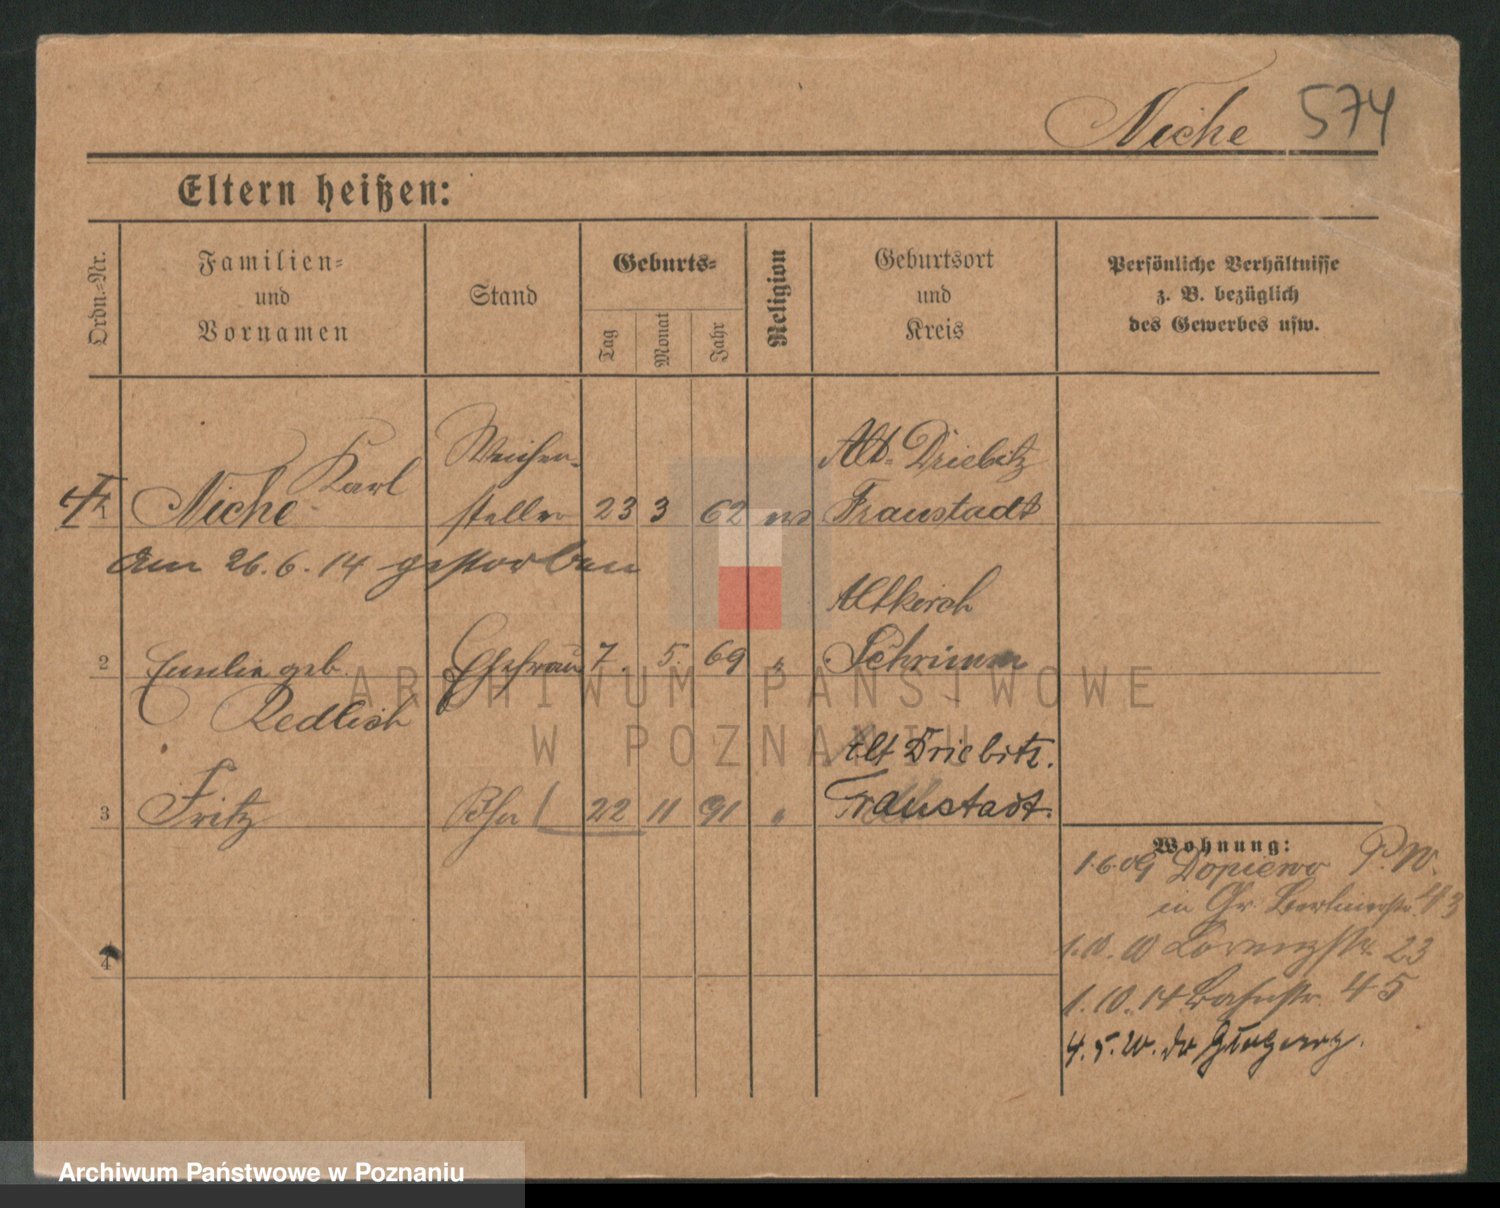 Niche 574
Eltern heißen:
Ordn.=Nr.
Familien=
und
Vornamen
Stand
Geburts=
Tag
Monat
Jahr
Religion
Geburtsort
und
Kreis
Persönliche Verhältnisse
z. B. bezüglich
des Gewerbes usw.
Niche Karl
Weichen-
steller 23 3 62
Alt-Driebitz
Fraustadt
am 26.6.14 gestorben
2 Emilie geb.
Redlich
Ehefrau 7. 5. 69 "
Altkirch
Schrimm
3 Fritz 22 11 91 "
Alt Driebitz.
Fraustadt.
4
Wohnung:
1.6.09 Dopiewo P.W.
in Gr. Berlinerstr. 43
1.10.10 Lorenzstr. 23
1.10.14 45
4.5.20.
ARCHIWUM PAŃSTWOWE
W POZNANIU
Archiwum Państwowe w Poznaniu